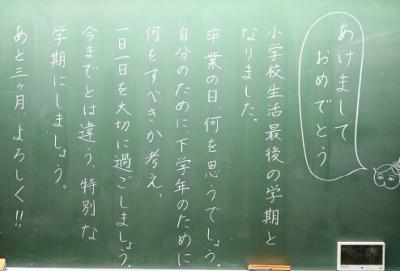 あけまして
おめでとう
小学校生活最後の学期と
なりました。
卒業の日、何を思うでしょう。
自分のために、下学年のために
何をすべきか考え、
一日一日を大切に過ごしましょう。
今までとは違う、特別な
学期にしましょう。
あと三ヶ月、よろしく!!